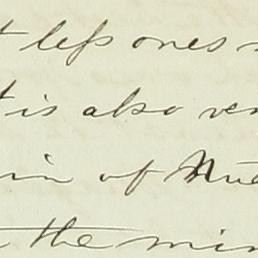 t less ones
t is also ver
in of Mue
the min